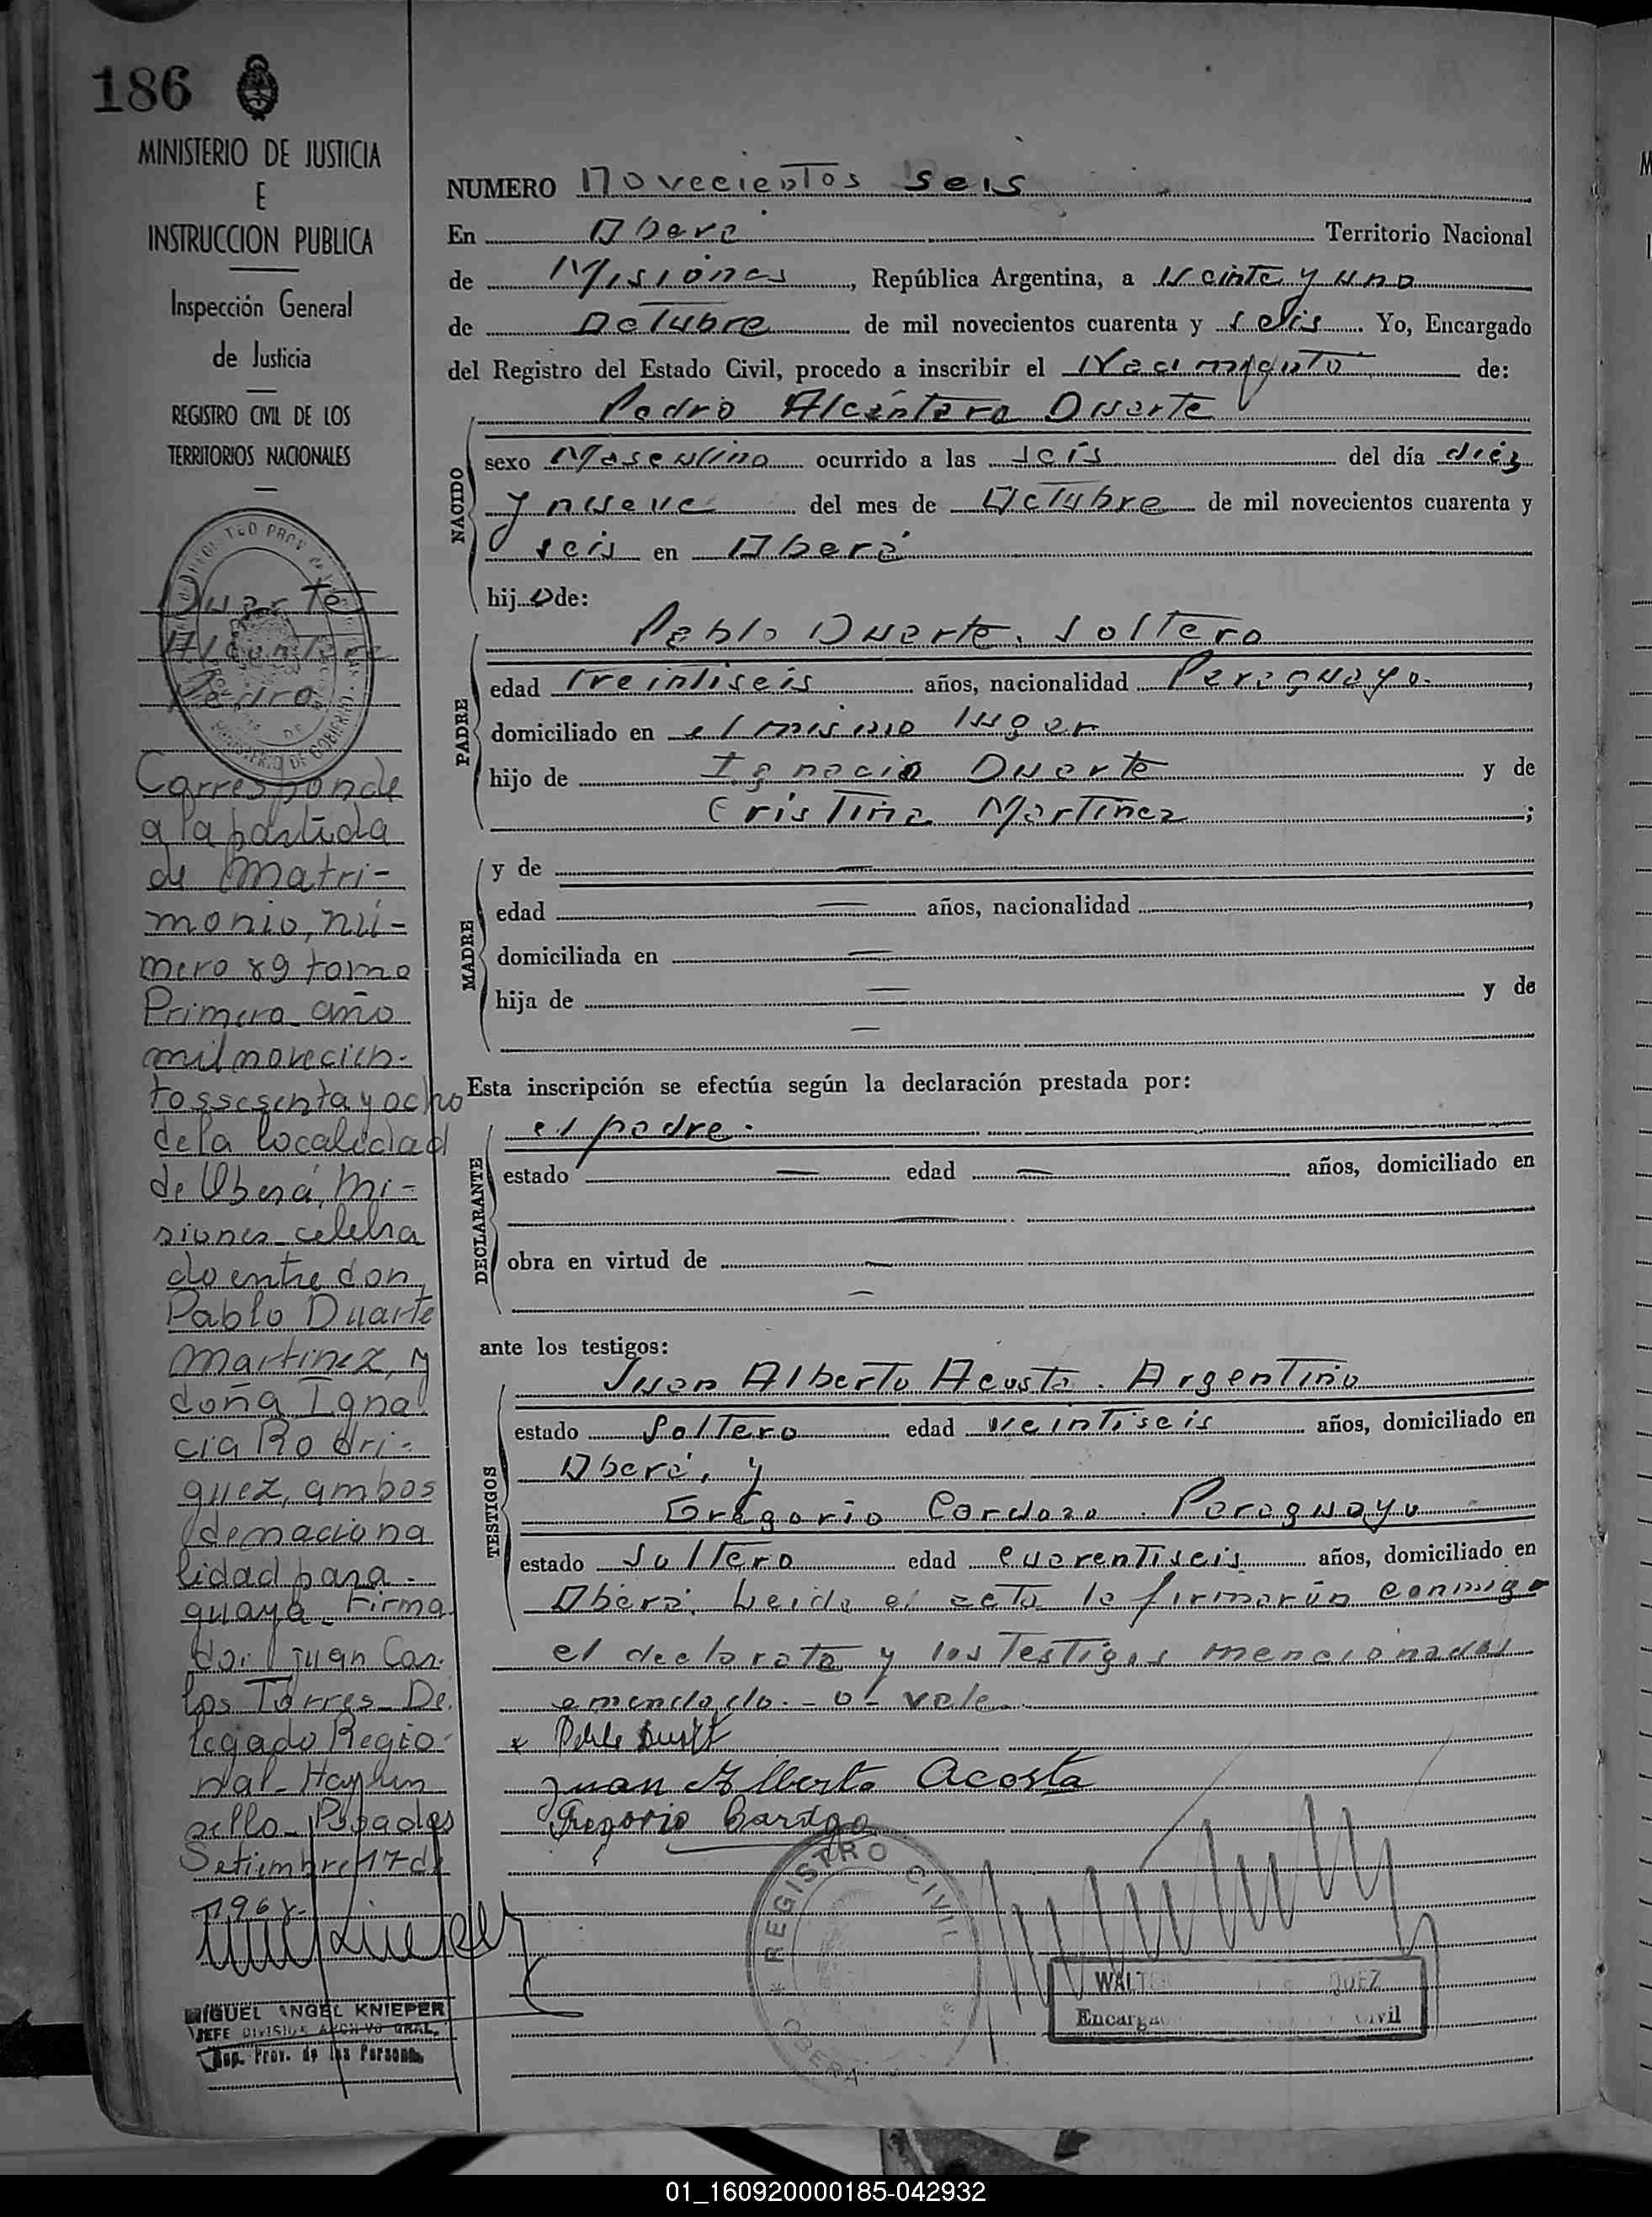 186
MINISTERIO DE JUSTICIA
E
INSTRUCCION PUBLICA
Inspección General
de Justicia
REGISTRO CIVIL DE LOS
TERRITORIOS NACIONALES
Duarte
Alcantara
Pedro
Corresponde
a la partida
de Matri-
monio, nú-
mero 89 tomo
Primero año
mil novecien-
tos sesenta y ocho
de la localidad
de Oberá, Mi-
siones celebra
do entre don
Pablo Duarte
Martinez, y
doña Igna
cia Rodri-
guez, ambos
de naciona
lidad para-
guaya. Firma
do: Juan Car.
los Torres De
legado Regio
nal - Hay un
sello - Posadas
Setiembre 17 de
1968-
MIGUEL ANGEL KNIEPER
JEFE DIVISION ARCHIVO GRAL.
Rep. Prov. de las Personas
NUMERO Novecientos seis
En Oberá Territorio Nacional
de Misiones, República Argentina, a veinte y uno
de Octubre de mil novecientos cuarenta y seis. Yo, Encargado
del Registro del Estado Civil, procedo a inscribir el Nacimiento de:
Pedro Alcántara Duarte
NACIDO
sexo Masculino ocurrido a las seis del día diez
y nueve del mes de Octubre de mil novecientos cuarenta y
seis en Oberá
hijo de:
PADRE
Pablo Duarte. Soltero
edad treintiseis años, nacionalidad Paraguayo.,
domiciliado en el mismo lugar
hijo de Ignacio Duarte y de
Cristina Martinez;
MADRE
y de —
edad — años, nacionalidad,
domiciliada en —
hija de — y de
—
Esta inscripción se efectúa según la declaración prestada por:
DECLARANTE
el padre.
estado — edad — años, domiciliado en
—
obra en virtud de —
—
ante los testigos:
TESTIGOS
Juan Alberto Acosta. Argentino
estado Soltero edad veintiseis años, domiciliado en
Oberá, y
Gregorio Cardozo. Paraguayo
estado Soltero edad cuarentiseis años, domiciliado en
Oberá. Leida el acta la firmarón conmigo
el declarate y los testigos mencionados
emendado - o - vale.
x Pablo Duarte
Juan Alberto Acosta
Gregorio Cardozo
REGISTRO CIVIL
OBERA
WALT QUEZ
Encarga ivil
01_160920000185-042932